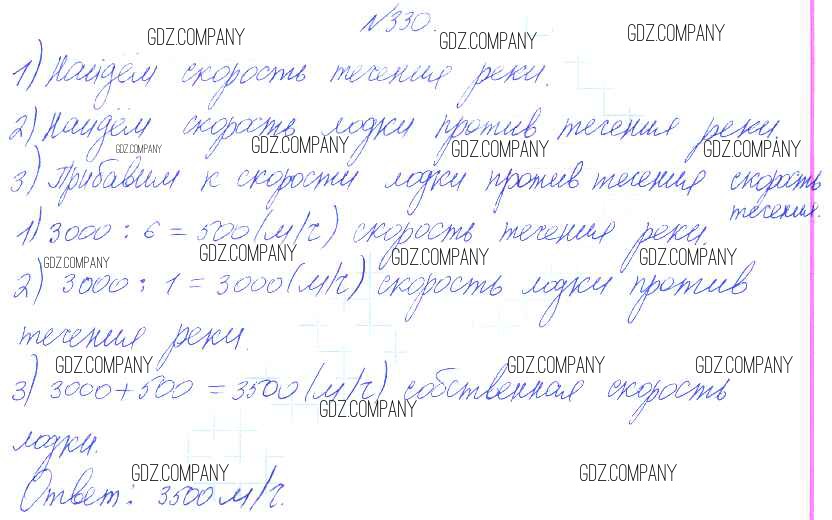 №330.
GDZ.COMPANY GDZ.COMPANY GDZ.COMPANY
1) Найдём скорость течения реки.
2) Найдём скорость лодки против течения реки.
GDZ.COMPANY GDZ.COMPANY GDZ.COMPANY GDZ.COMPANY
3) Прибавим к скорости лодки против течения скорость
течения.
1) 3000 : 6 = 500 (м/ч) скорость течения реки.
GDZ.COMPANY GDZ.COMPANY GDZ.COMPANY GDZ.COMPANY
2) 3000 : 1 = 3000 (м/ч) скорость лодки против
течения реки.
GDZ.COMPANY GDZ.COMPANY GDZ.COMPANY
3) 3000 + 500 = 3500 (м/ч) собственная скорость
GDZ.COMPANY
лодки.
GDZ.COMPANY GDZ.COMPANY
Ответ: 3500 м/ч.